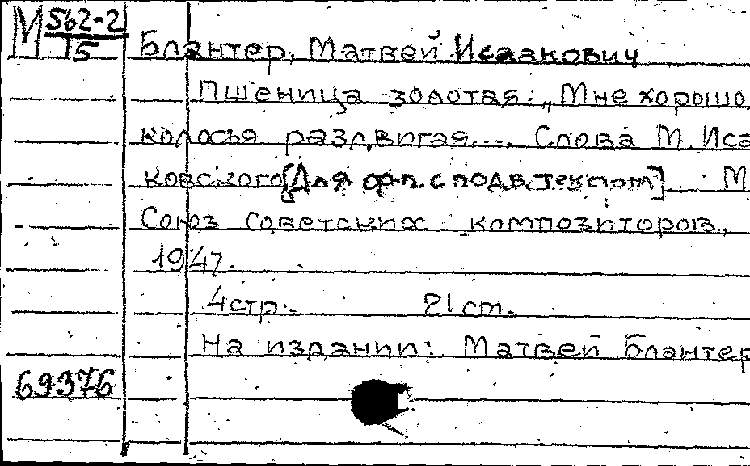 М 562-2
15
Блантер, Матвей Исаакович
Пшеница золотая: „Мне хорошо,
колосья раздвигая.... Слова М. Иса
ковского [Для ф-п. с подв. текстом] М
Союз советских композиторов,
1947.
4 стр. 21 см.
На издании: Матвей Блантер
69376